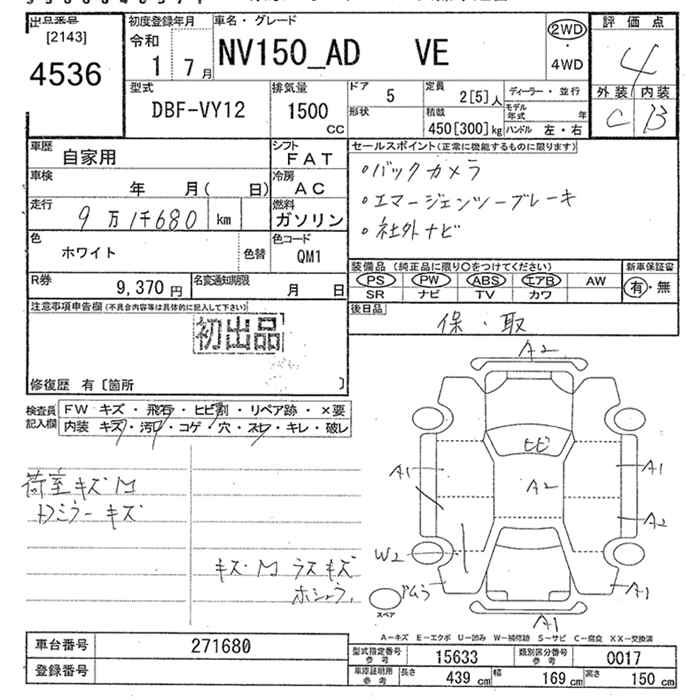 出品番号
[2143]
4536
初度登録年月
令和
1 7月
車名・グレード
NV150_AD VE
2WD
・
4WD
評価点
4
外装 内装
C B
型式
DBF-VY12
排気量
1500
CC
ドア
5
形状
定員
2[5]人
積載
450[300]kg
ディーラー・並行
モデル年式 年
ハンドル 左・右
車歴
自家用
シフト
FAT
車検
年 月( 日)
冷房
AC
走行
9万1千680 km
燃料
ガソリン
色
ホワイト
色替
色コード
QM1
R券
9,370 円
名変通知期限
月 日
セールスポイント(正常に機能するものに限ります)
・バックカメラ
・エマージェンツーブレーキ
・社外ナビ
装備品 (純正品に限り○をつけてください)
新車保証書
PS PW ABS エアB AW
SR ナビ TV カワ
有・無
後日品
保・取
注意事項申告欄 (不具合内容等は具体的に記入して下さい)
初出品
修復歴 有〔箇所 〕
検査員記入欄
FW キズ・飛石・ヒビ割・リペア跡・×要
内装 キズ・汚れ・コゲ・穴・スレ・キレ・破レ
荷室キズM
ドミラーキズ
キズ・M ラスキズ
A2
ヒビ
A1
A2
A1
A2
W2
A1
A1
スペア
A－キズ E－エクボ U－凹み W－補修跡 S－サビ C－腐食 XX－交換済
車台番号
271680
登録番号
型式指定番号
参考
15633
類別区分番号
参考
0017
車庫証明用
参考
長さ
439 cm
幅
169 cm
高さ
150 cm